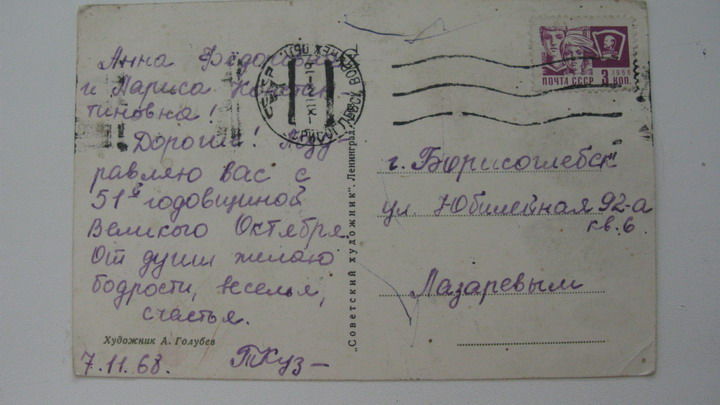 Анна Федоровна
и Лариса Констан
тиновна!
Дорогие! Позд-
равляю вас с
51й годовщиной
Великого Октября
От души желаю
бодрости, веселья,
счастья.
Художник А. Голубев
7.11.68. ТКуз-
"Советский художник". Ленинград
СССР
ПОЧТА СССР 3 КОП.
1966
г. Борисоглебск
ул. Юбилейная 92-а
кв. 6.
Лазаревым